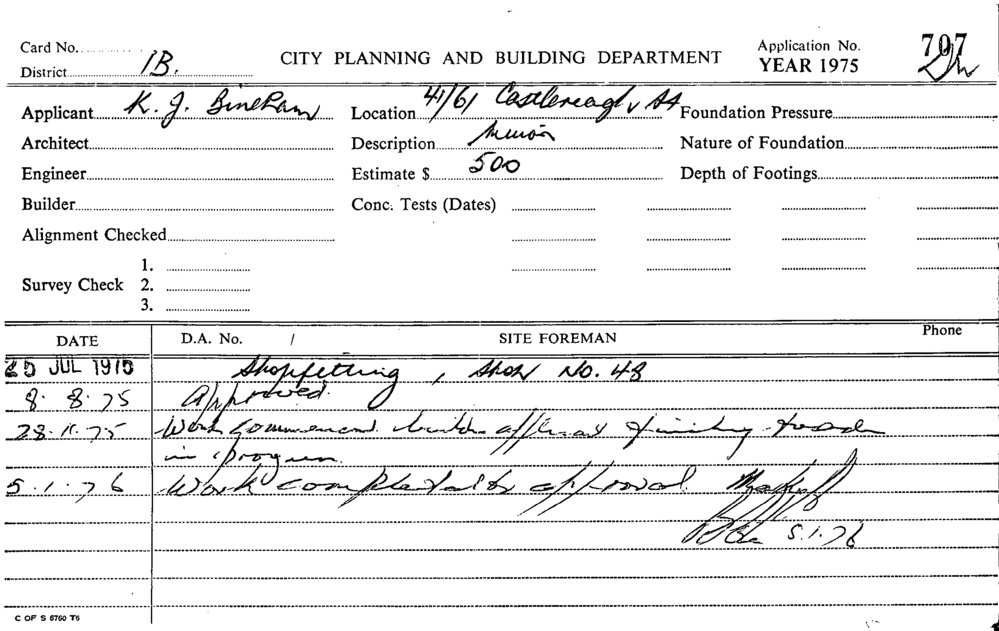 Card No.
District 1B.
CITY PLANNING AND BUILDING DEPARTMENT
Application No. 707
YEAR 1975
Applicant K. J. Bineham
Location 41/61 Castlereagh St
Foundation Pressure
Architect
Description Minor
Nature of Foundation
Engineer
Estimate $ 500
Depth of Footings
Builder
Conc. Tests (Dates)
Alignment Checked
Survey Check 1.
2.
3.
DATE D.A. No. / SITE FOREMAN Phone
25 JUL 1975 Shopfitting, Shop No. 48
8.8.75 Approved.
28.11.75 Work commenced. finishing trades
in progress.
5.1.76 Work completed as approved.
5.1.76
C OF S 6760 T6